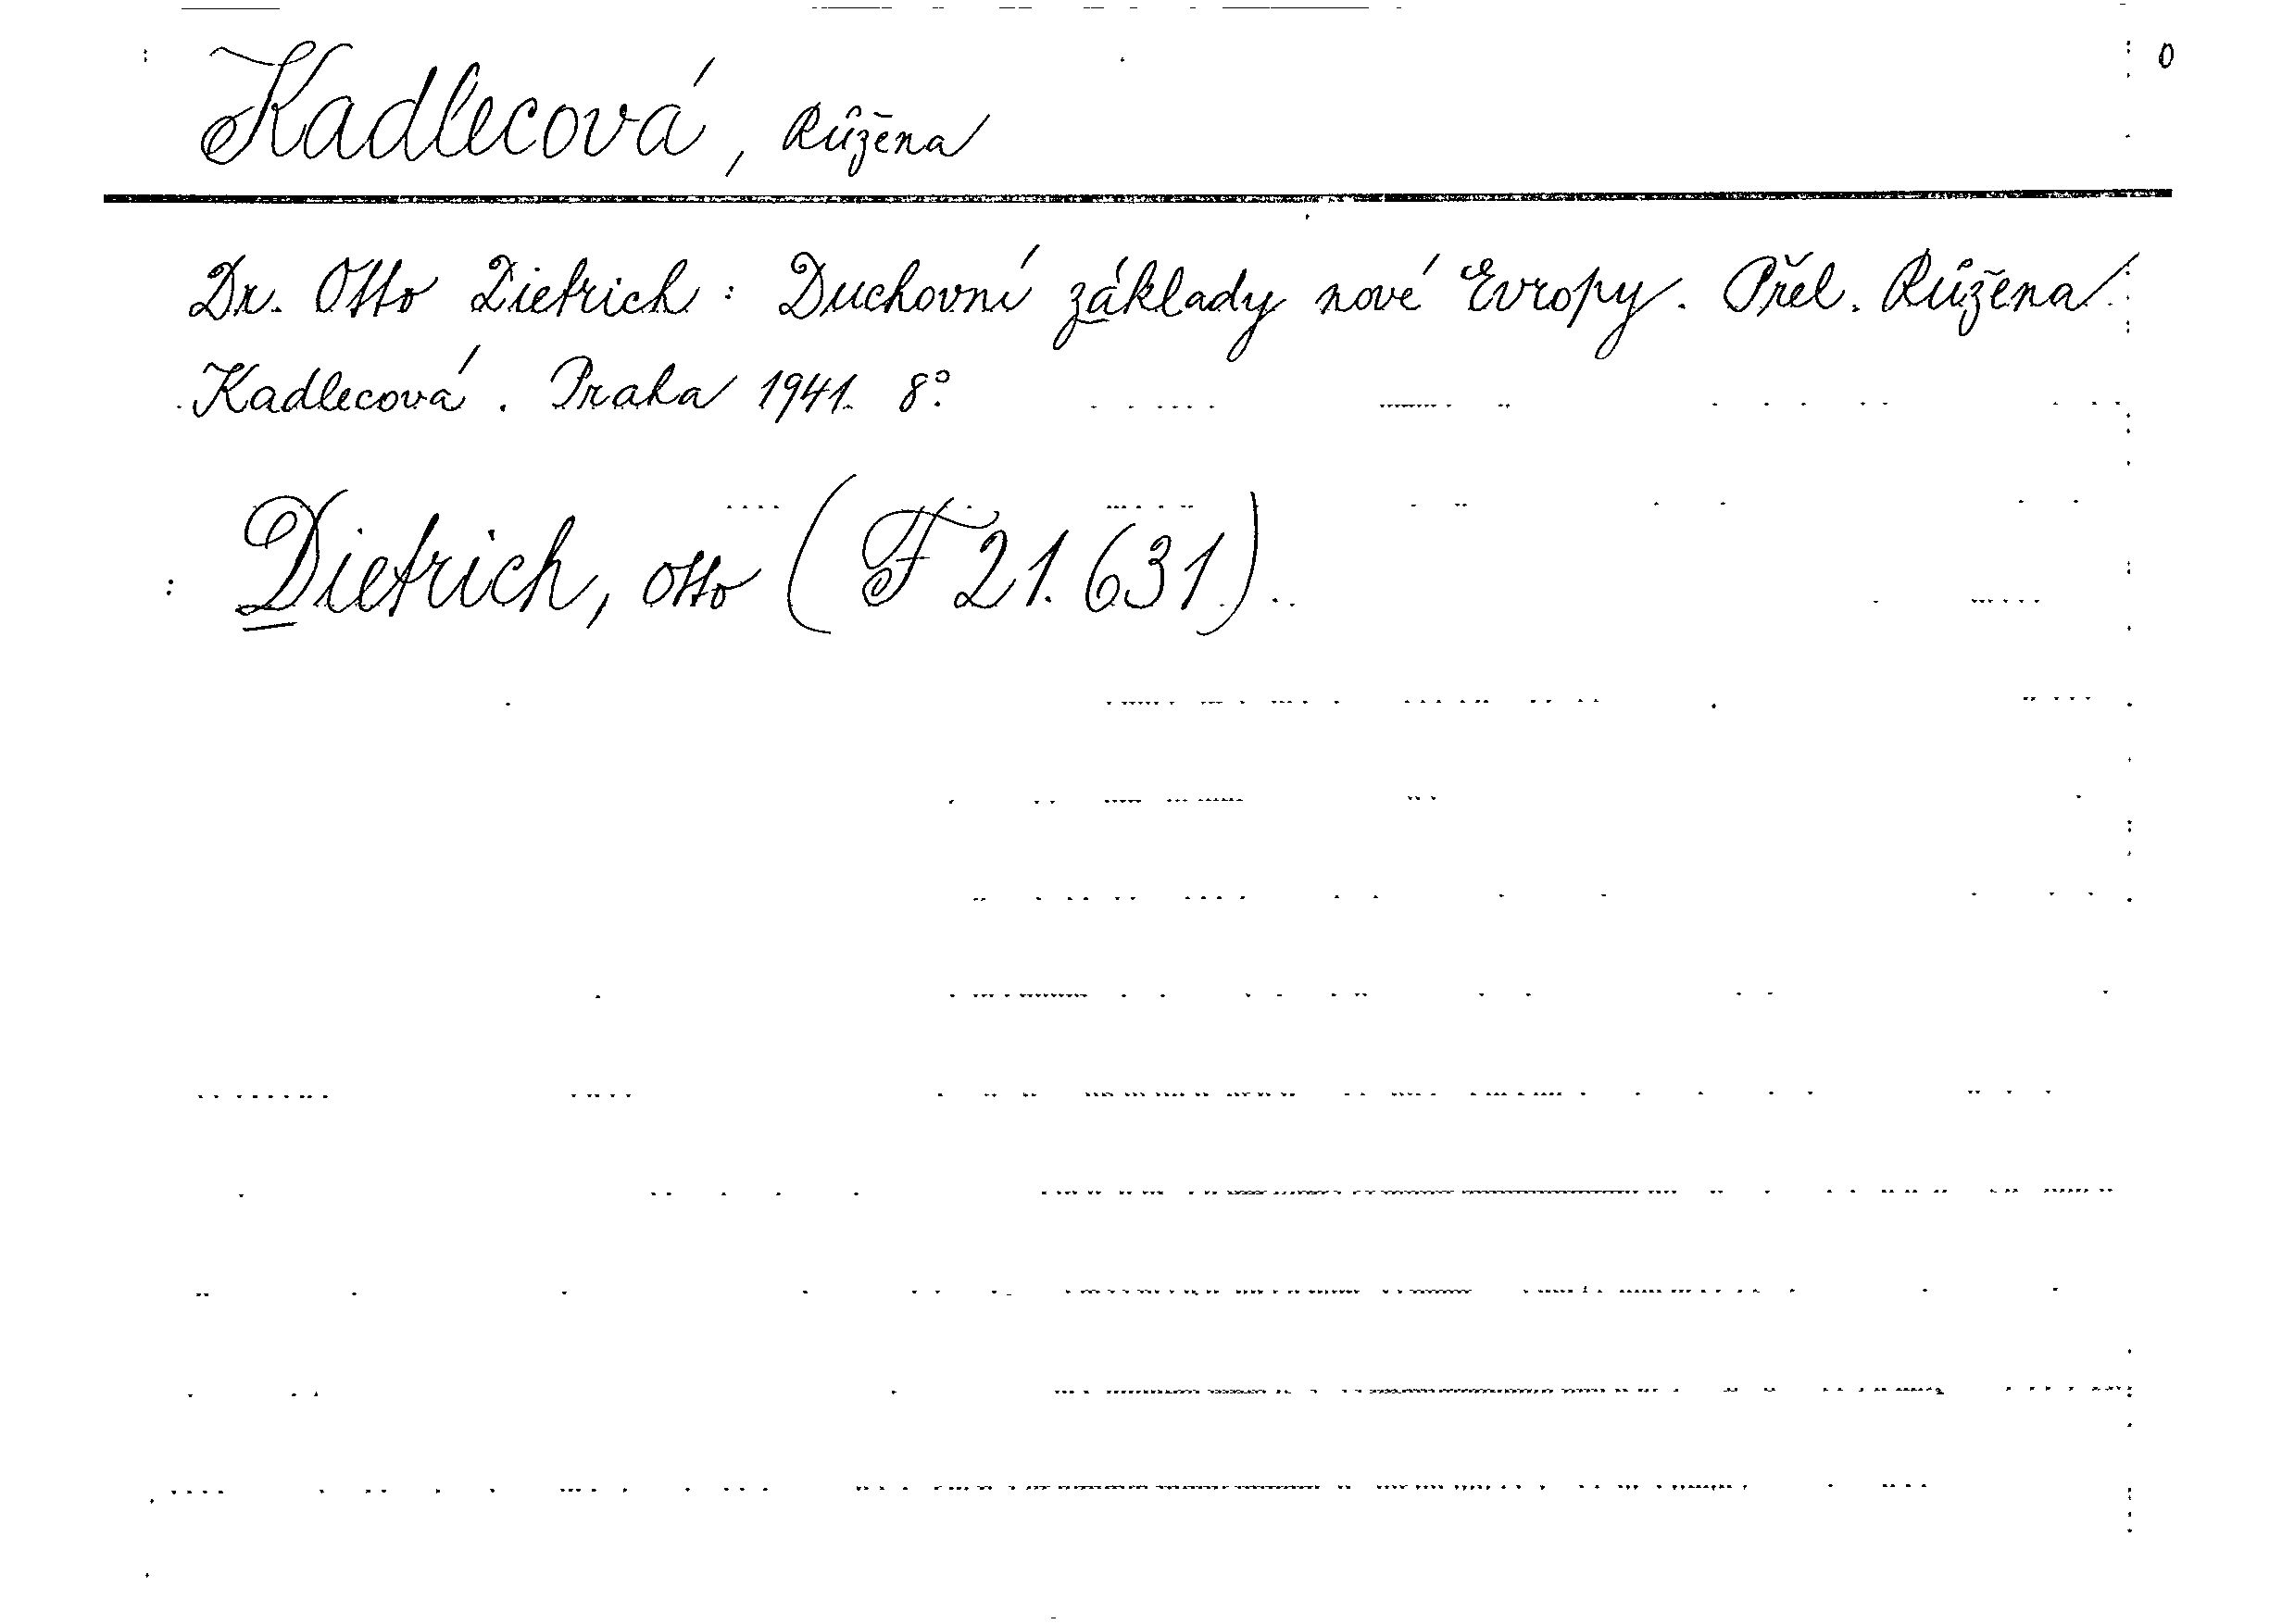 0
Kadlecová, Růžena
Dr. Otto Dietrich: Duchovní základy nové Evropy. Přel. Růžena
Kadlecová. Praha 1941. 8°.
Dietrich, Otto (F 21.631).